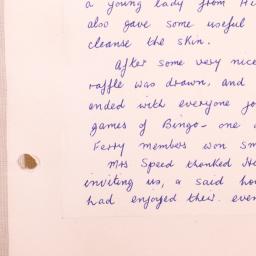 a young lady from Hi
also gave some useful
cleanse the skin.
After some very nice
raffle was drawn, and
ended with everyone jo
games of Bingo - one o
Ferry members won sm
Mrs Speed thanked He
inviting us, & said how
had enjoyed their even